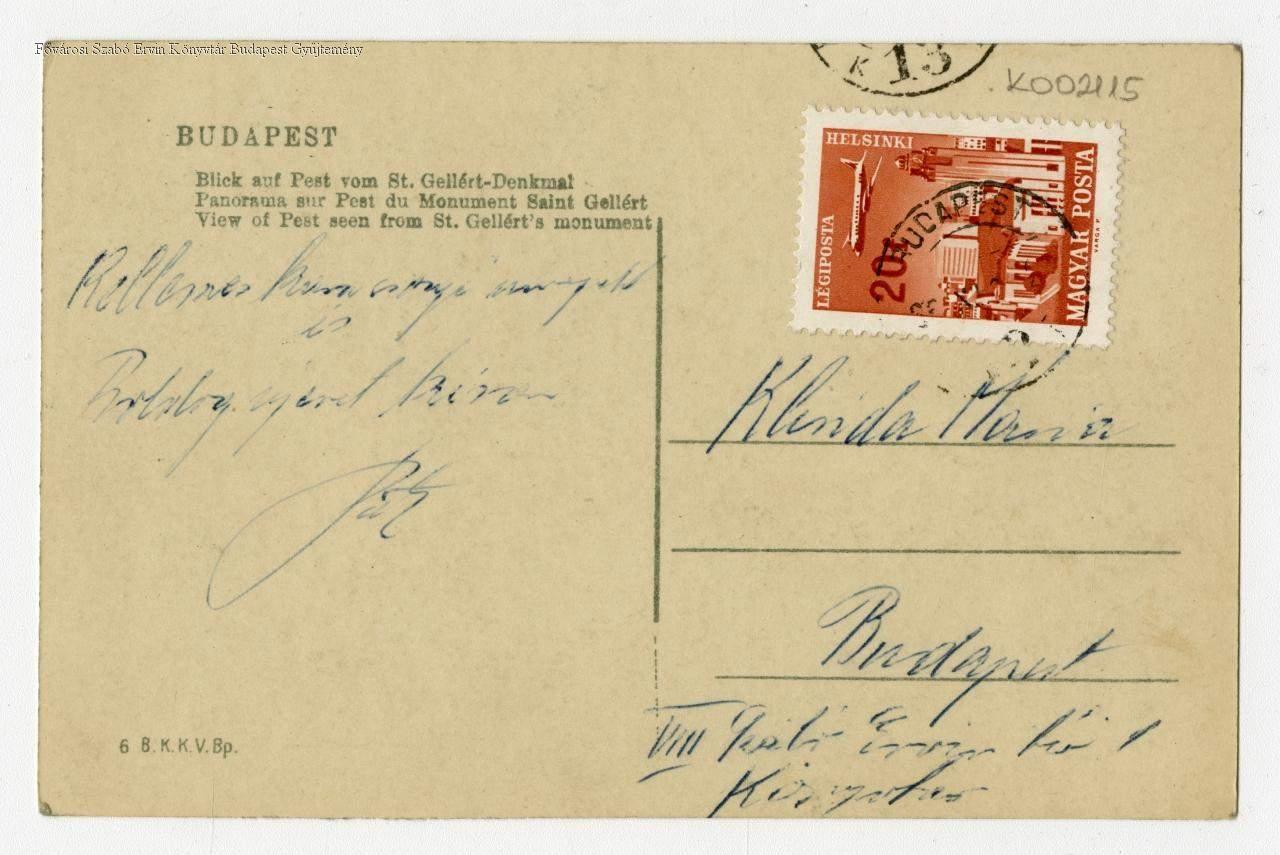 Fővárosi Szabó Ervin Könyvtár Budapest Gyűjtemény
K 13
K002115
BUDAPEST
Blick auf Pest vom St. Gellért-Denkmal
Panorama sur Pest du Monument Saint Gellért
View of Pest seen from St. Gellért's monument
HELSINKI
LÉGIPOSTA
20f
MAGYAR POSTA
VARGA P.
BUDAPEST
Kellemes karácsonyi ünnepeket
és
Boldog újévet kíván
Klinda Mária
Budapest
VIII Szabó Ervin tér 1
Könyvtár
6 B.K.K.V.Bp.